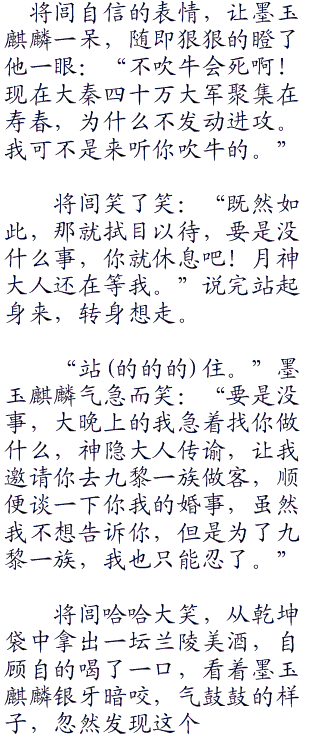 将闾自信的表情，让墨玉
麒麟一呆，随即狠狠的瞪了
他一眼：“不吹牛会死啊！
现在大秦四十万大军聚集在
寿春，为什么不发动进攻。
我可不是来听你吹牛的。”
将闾笑了笑：“既然如
此，那就拭目以待，要是没
什么事，你就休息吧！月神
大人还在等我。”说完站起
身来，转身想走。
“站(的的的)住。”墨
玉麒麟气急而笑：“要是没
事，大晚上的我急着找你做
什么，神隐大人传谕，让我
邀请你去九黎一族做客，顺
便谈一下你我的婚事，虽然
我不想告诉你，但是为了九
黎一族，我也只能忍了。”
将闾哈哈大笑，从乾坤
袋中拿出一坛兰陵美酒，自
顾自的喝了一口，看着墨玉
麒麟银牙暗咬，气鼓鼓的样
子，忽然发现这个